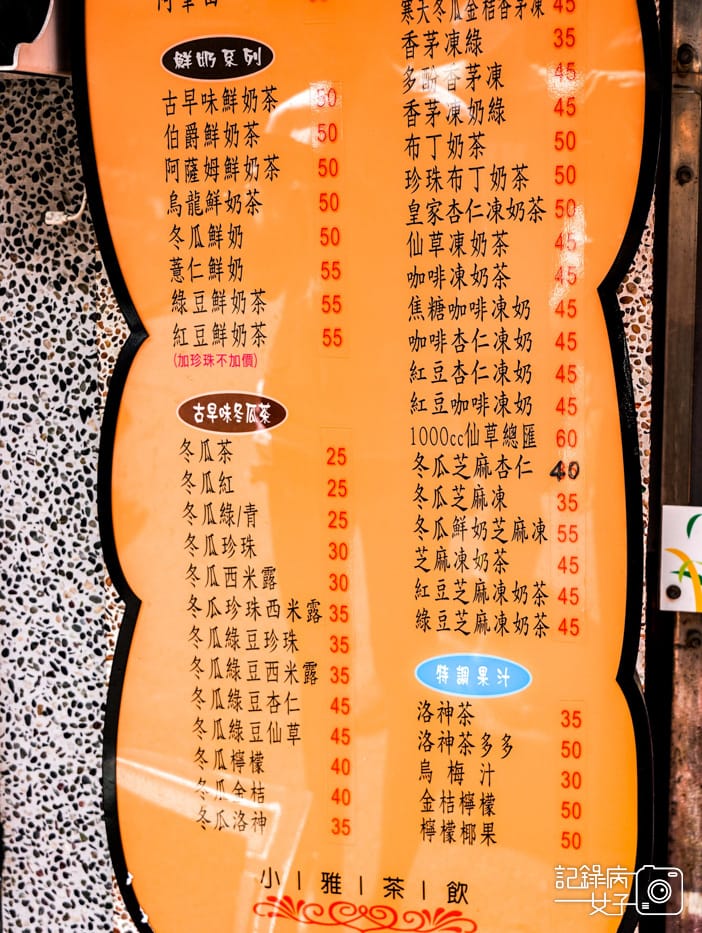 鮮奶系列
古早味鮮奶茶 50
伯爵鮮奶茶 50
阿薩姆鮮奶茶 50
烏龍鮮奶茶 50
冬瓜鮮奶 50
薏仁鮮奶 55
綠豆鮮奶茶 55
紅豆鮮奶茶 55
(加珍珠不加價)
古早味冬瓜茶
冬瓜茶 25
冬瓜紅 25
冬瓜綠/青 25
冬瓜珍珠 30
冬瓜西米露 30
冬瓜珍珠西米露 35
冬瓜綠豆珍珠 35
冬瓜綠豆西米露 35
冬瓜綠豆杏仁 45
冬瓜綠豆仙草 45
冬瓜檸檬 40
冬瓜金桔 40
冬瓜洛神 35
寒天冬瓜金桔香茅凍 45
香茅凍綠 35
多酚香茅凍 45
香茅凍奶綠 45
布丁奶茶 50
珍珠布丁奶茶 50
皇家杏仁凍奶茶 50
仙草凍奶茶 45
咖啡凍奶茶 45
焦糖咖啡凍奶 45
咖啡杏仁凍奶 45
紅豆杏仁凍奶 45
紅豆咖啡凍奶 45
1000cc仙草總匯 60
冬瓜芝麻杏仁 40
冬瓜芝麻凍 35
冬瓜鮮奶芝麻凍 55
芝麻凍奶茶 45
紅豆芝麻凍奶茶 45
綠豆芝麻凍奶茶 45
特調果汁
洛神茶 35
洛神茶多多 50
烏梅汁 30
金桔檸檬 50
檸檬椰果 50
小|雅|茶|飲
記錄病
女子